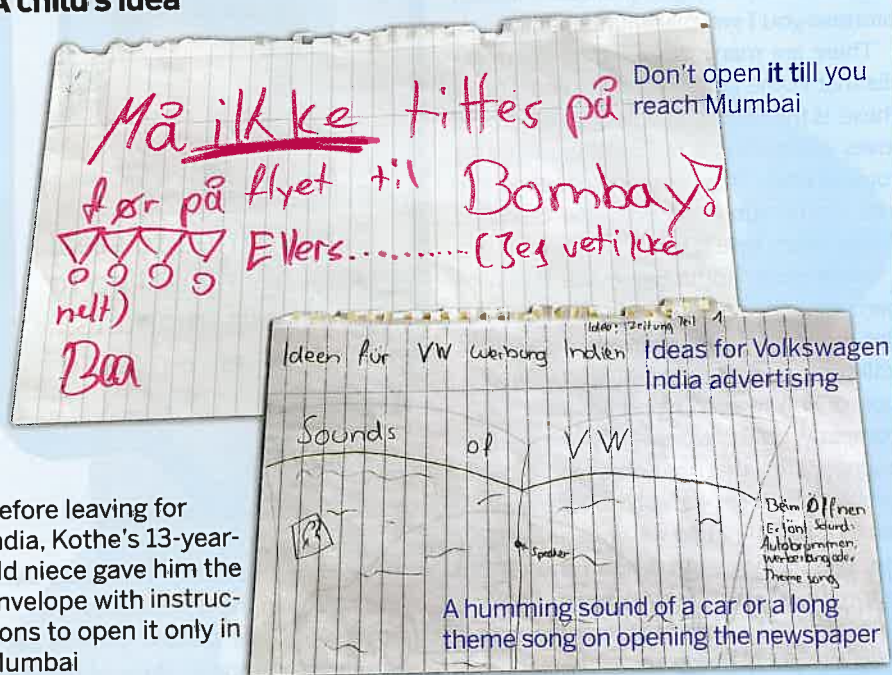 A child's idea
Må ikke tittes på
før på flyet til Bombay!
Ellers.......... (Jeg vet ikke
helt)
Bea
Don't open it till you
reach Mumbai
Idee: Zeitung Teil 1
Ideen für VW Werbung Indien
Ideas for Volkswagen
India advertising
Sounds of VW
Speaker
Beim Öffnen
Ertönt Sound:
Autobrummen,
Theme song
A humming sound of a car or a long
theme song on opening the newspaper
efore leaving for
ndia, Kothe's 13-year-
ld niece gave him the
nvelope with instruc-
ons to open it only in
umbai